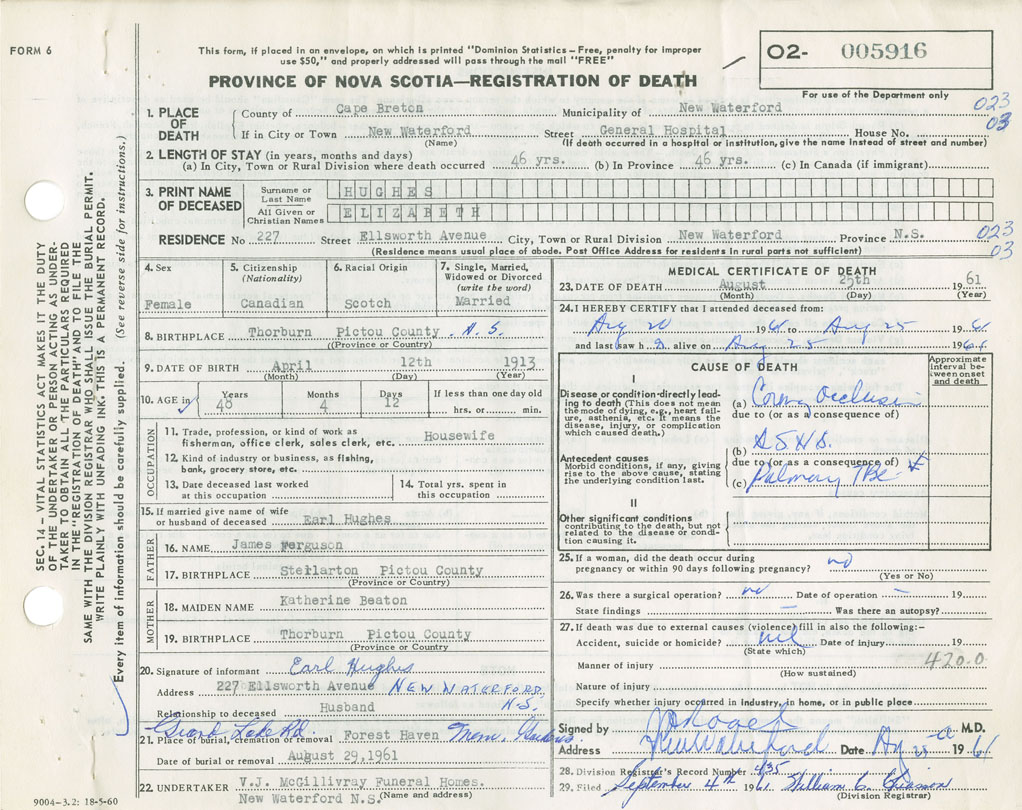 FORM 6
This form, if placed in an envelope, on which is printed "Dominion Statistics – Free, penalty for improper
use $50," and properly addressed will pass through the mail "FREE"
PROVINCE OF NOVA SCOTIA—REGISTRATION OF DEATH
02- 005916
For use of the Department only
023
03
1. PLACE OF DEATH
County of Cape Breton Municipality of New Waterford
If in City or Town New Waterford Street General Hospital House No.
(Name) (If death occurred in a hospital or institution, give the name instead of street and number)
2. LENGTH OF STAY (in years, months and days)
(a) In City, Town or Rural Division where death occurred 46 yrs. (b) In Province 46 yrs. (c) In Canada (if immigrant)
3. PRINT NAME OF DECEASED
Surname or Last Name HUGHES
All Given or Christian Names ELIZABETH
RESIDENCE No 227 Street Ellsworth Avenue City, Town or Rural Division New Waterford Province N.S.
023
03
(Residence means usual place of abode. Post Office Address for residents in rural parts not sufficient)
4. Sex
Female
5. Citizenship
(Nationality)
Canadian
6. Racial Origin
Scotch
7. Single, Married,
Widowed or Divorced
(write the word)
Married
8. BIRTHPLACE Thorburn Pictou County . N.S.
((Province or County)
9. DATE OF BIRTH April 12th 1913
(Month) (Day) (Year)
10. AGE in
Years Months Days If less than one day old
48 4 12 hrs. or min.
OCCUPATION
11. Trade, profession, or kind of work as
fisherman, office clerk, sales clerk, etc. Housewife
12. Kind of industry or business, as fishing,
bank, grocery store, etc.
13. Date deceased last worked
at this occupation
14. Total yrs. spent in
this occupation
15. If married give name of wife
or husband of deceased Earl Hughes
FATHER
16. NAME James Ferguson
17. BIRTHPLACE Stellarton Pictou County
(Province or County)
MOTHER
18. MAIDEN NAME Katherine Beaton
19. BIRTHPLACE Thorburn Pictou County
(Province or County
20. Signature of informant Earl Hughes
Address 227 Ellsworth Avenue NEW WATERFORD,
N.S.
Relationship to deceased Husband
Grand Lake Rd.
21. Place of burial, cremation or removal Forest Haven Mem. Gardens
Date of burial or removal August 29,1961
22. UNDERTAKER V.J. McGillivray Funeral Homes.
New Waterford N.S. (Name and address)
9004-3.2: 18-5-60
MEDICAL CERTIFICATE OF DEATH
23. DATE OF DEATH August 25th 1961
(Month) (Day) (Year)
24. I HEREBY CERTIFY that I attended deceased from:
Aug 20 1961 to Aug 25 1961
and last saw h alive on Aug 25 1961
CAUSE OF DEATH
Approximate
interval be-
tween onset
and death
I
Disease or condition directly lead-
ing to death (This does not mean
the mode of dying, e.g., heart fail-
ure, asthenia, etc. It means the
disease, injury, or complication
which caused death.)
(a) Occlusion
due to (or as a consequence of)
(b)
Antecedent causes
Morbid conditions, if any, giving
rise to the above cause, stating
the underlying condition last.
due to (or as a consequence of)
(c) TBc
II
Other significant conditions
contributing to the death, but not
related to the disease or condi-
tion causing it.
25. If a woman, did the death occur during
pregnancy or within 90 days following pregnancy? no
(Yes or No)
26. Was there a surgical operation? no Date of operation – 19
State findings – Was there an autopsy?
27. If death was due to external causes (violence) fill in also the following:–
Accident, suicide or homicide? nil Date of injury 19
(State which)
Manner of injury 420.0
(How sustained)
Nature of injury
Specify whether injury occurred in industry, in home, or in public place
Signed by M.D.
Address New Waterford Date Aug 25 1961
28. Division Registrar's Record Number 435
29. Filed September 4th 1961 William C.
(Division Registrar)
SEC. 14 – VITAL STATISTICS ACT MAKES IT THE DUTY
OF THE UNDERTAKER OR PERSON ACTING AS UNDER-
TAKER TO OBTAIN ALL THE PARTICULARS REQUIRED
IN THE "REGISTRATION OF DEATH" AND TO FILE THE
SAME WITH THE DIVISION REGISTRAR WHO SHALL ISSUE THE BURIAL PERMIT.
WRITE PLAINLY WITH UNFADING INK. THIS IS A PERMANENT RECORD.
Every item of information should be carefully supplied. (See reverse side for instructions.)